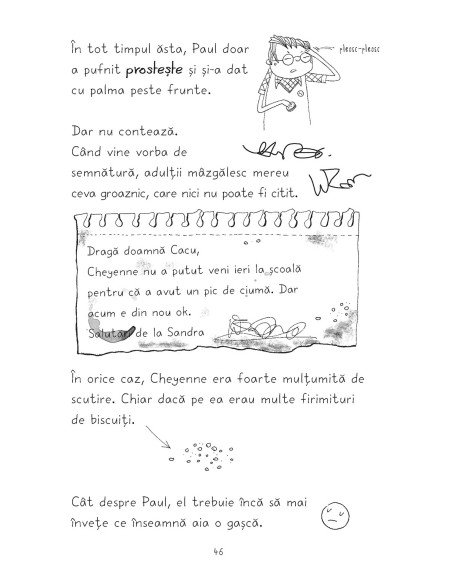 În tot timpul ăsta, Paul doar
a pufnit prostește și și-a dat
cu palma peste frunte.
pleosc-pleosc
Dar nu contează.
Când vine vorba de
semnătură, adulții mâzgălesc mereu
ceva groaznic, care nici nu poate fi citit.
Dragă doamnă Cacu,
Cheyenne nu a putut veni ieri la școală
pentru că a avut un pic de ciumă. Dar
acum e din nou ok.
Salutări de la Sandra
În orice caz, Cheyenne era foarte mulțumită de
scutire. Chiar dacă pe ea erau multe firimituri
de biscuiți.
Cât despre Paul, el trebuie încă să mai
învețe ce înseamnă aia o gașcă.
46